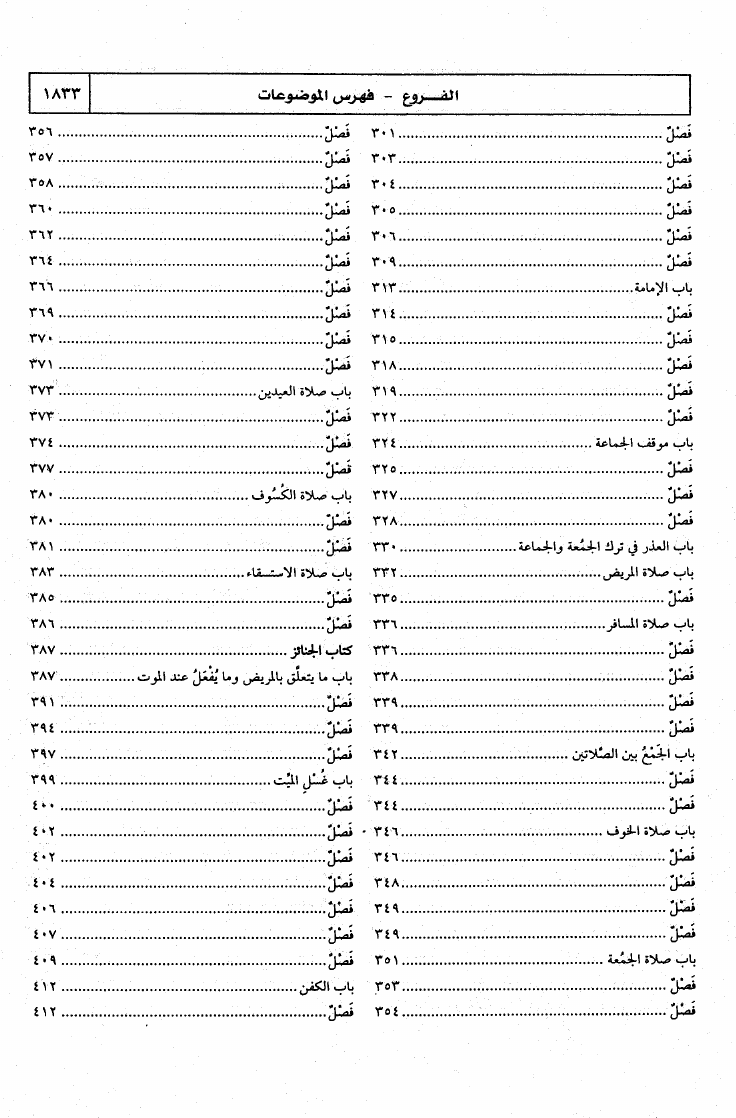 الفـــروع - فهرس الموضوعات ١٨٣٣
فَصْلٌ ٣٠١
فَصْلٌ ٣٠٣
فَصْلٌ ٣٠٤
فَصْلٌ ٣٠٥
فَصْلٌ ٣٠٦
فَصْلٌ ٣٠٩
باب الإمامة ٣١٣
فَصْلٌ ٣١٤
فَصْلٌ ٣١٥
فَصْلٌ ٣١٨
فَصْلٌ ٣١٩
فَصْلٌ ٣٢٢
باب موقف الجماعة ٣٢٤
فَصْلٌ ٣٢٥
فَصْلٌ ٣٢٧
فَصْلٌ ٣٢٨
باب العذر في ترك الجمُعة والجماعة ٣٣٠
باب صلاة المريض ٣٣٢
فَصْلٌ ٣٣٥
باب صلاة المسافر ٣٣٦
فَصْلٌ ٣٣٦
فَصْلٌ ٣٣٨
فَصْلٌ ٣٣٩
فَصْلٌ ٣٣٩
باب الجَمْعُ بين الصَّلاتين ٣٤٢
فَصْلٌ ٣٤٤
فَصْلٌ ٣٤٤
باب صلاة الخوف ٣٤٦
فَصْلٌ ٣٤٦
فَصْلٌ ٣٤٨
فَصْلٌ ٣٤٩
فَصْلٌ ٣٤٩
باب صلاة الجمُعة ٣٥١
فَصْلٌ ٣٥٣
فَصْلٌ ٣٥٤
فَصْلٌ ٣٥٦
فَصْلٌ ٣٥٧
فَصْلٌ ٣٥٨
فَصْلٌ ٣٦٠
فَصْلٌ ٣٦٢
فَصْلٌ ٣٦٤
فَصْلٌ ٣٦٦
فَصْلٌ ٣٦٩
فَصْلٌ ٣٧٠
فَصْلٌ ٣٧١
باب صلاة العيدين ٣٧٣
فَصْلٌ ٣٧٣
فَصْلٌ ٣٧٤
فَصْلٌ ٣٧٧
باب صلاة الكُسُوف ٣٨٠
فَصْلٌ ٣٨٠
فَصْلٌ ٣٨١
باب صلاة الاستسقاء ٣٨٣
فَصْلٌ ٣٨٥
فَصْلٌ ٣٨٦
كتاب الجنائز ٣٨٧
باب ما يتعلَّق بالمريض وما يُفْعَلُ عند الموت ٣٨٧
فَصْلٌ ٣٩١
فَصْلٌ ٣٩٤
فَصْلٌ ٣٩٧
باب غُسْلِ الميِّت ٣٩٩
فَصْلٌ ٤٠٠
فَصْلٌ ٤٠٢
فَصْلٌ ٤٠٢
فَصْلٌ ٤٠٤
فَصْلٌ ٤٠٦
فَصْلٌ ٤٠٧
فَصْلٌ ٤٠٩
باب الكفن ٤١٢
فَصْلٌ ٤١٢